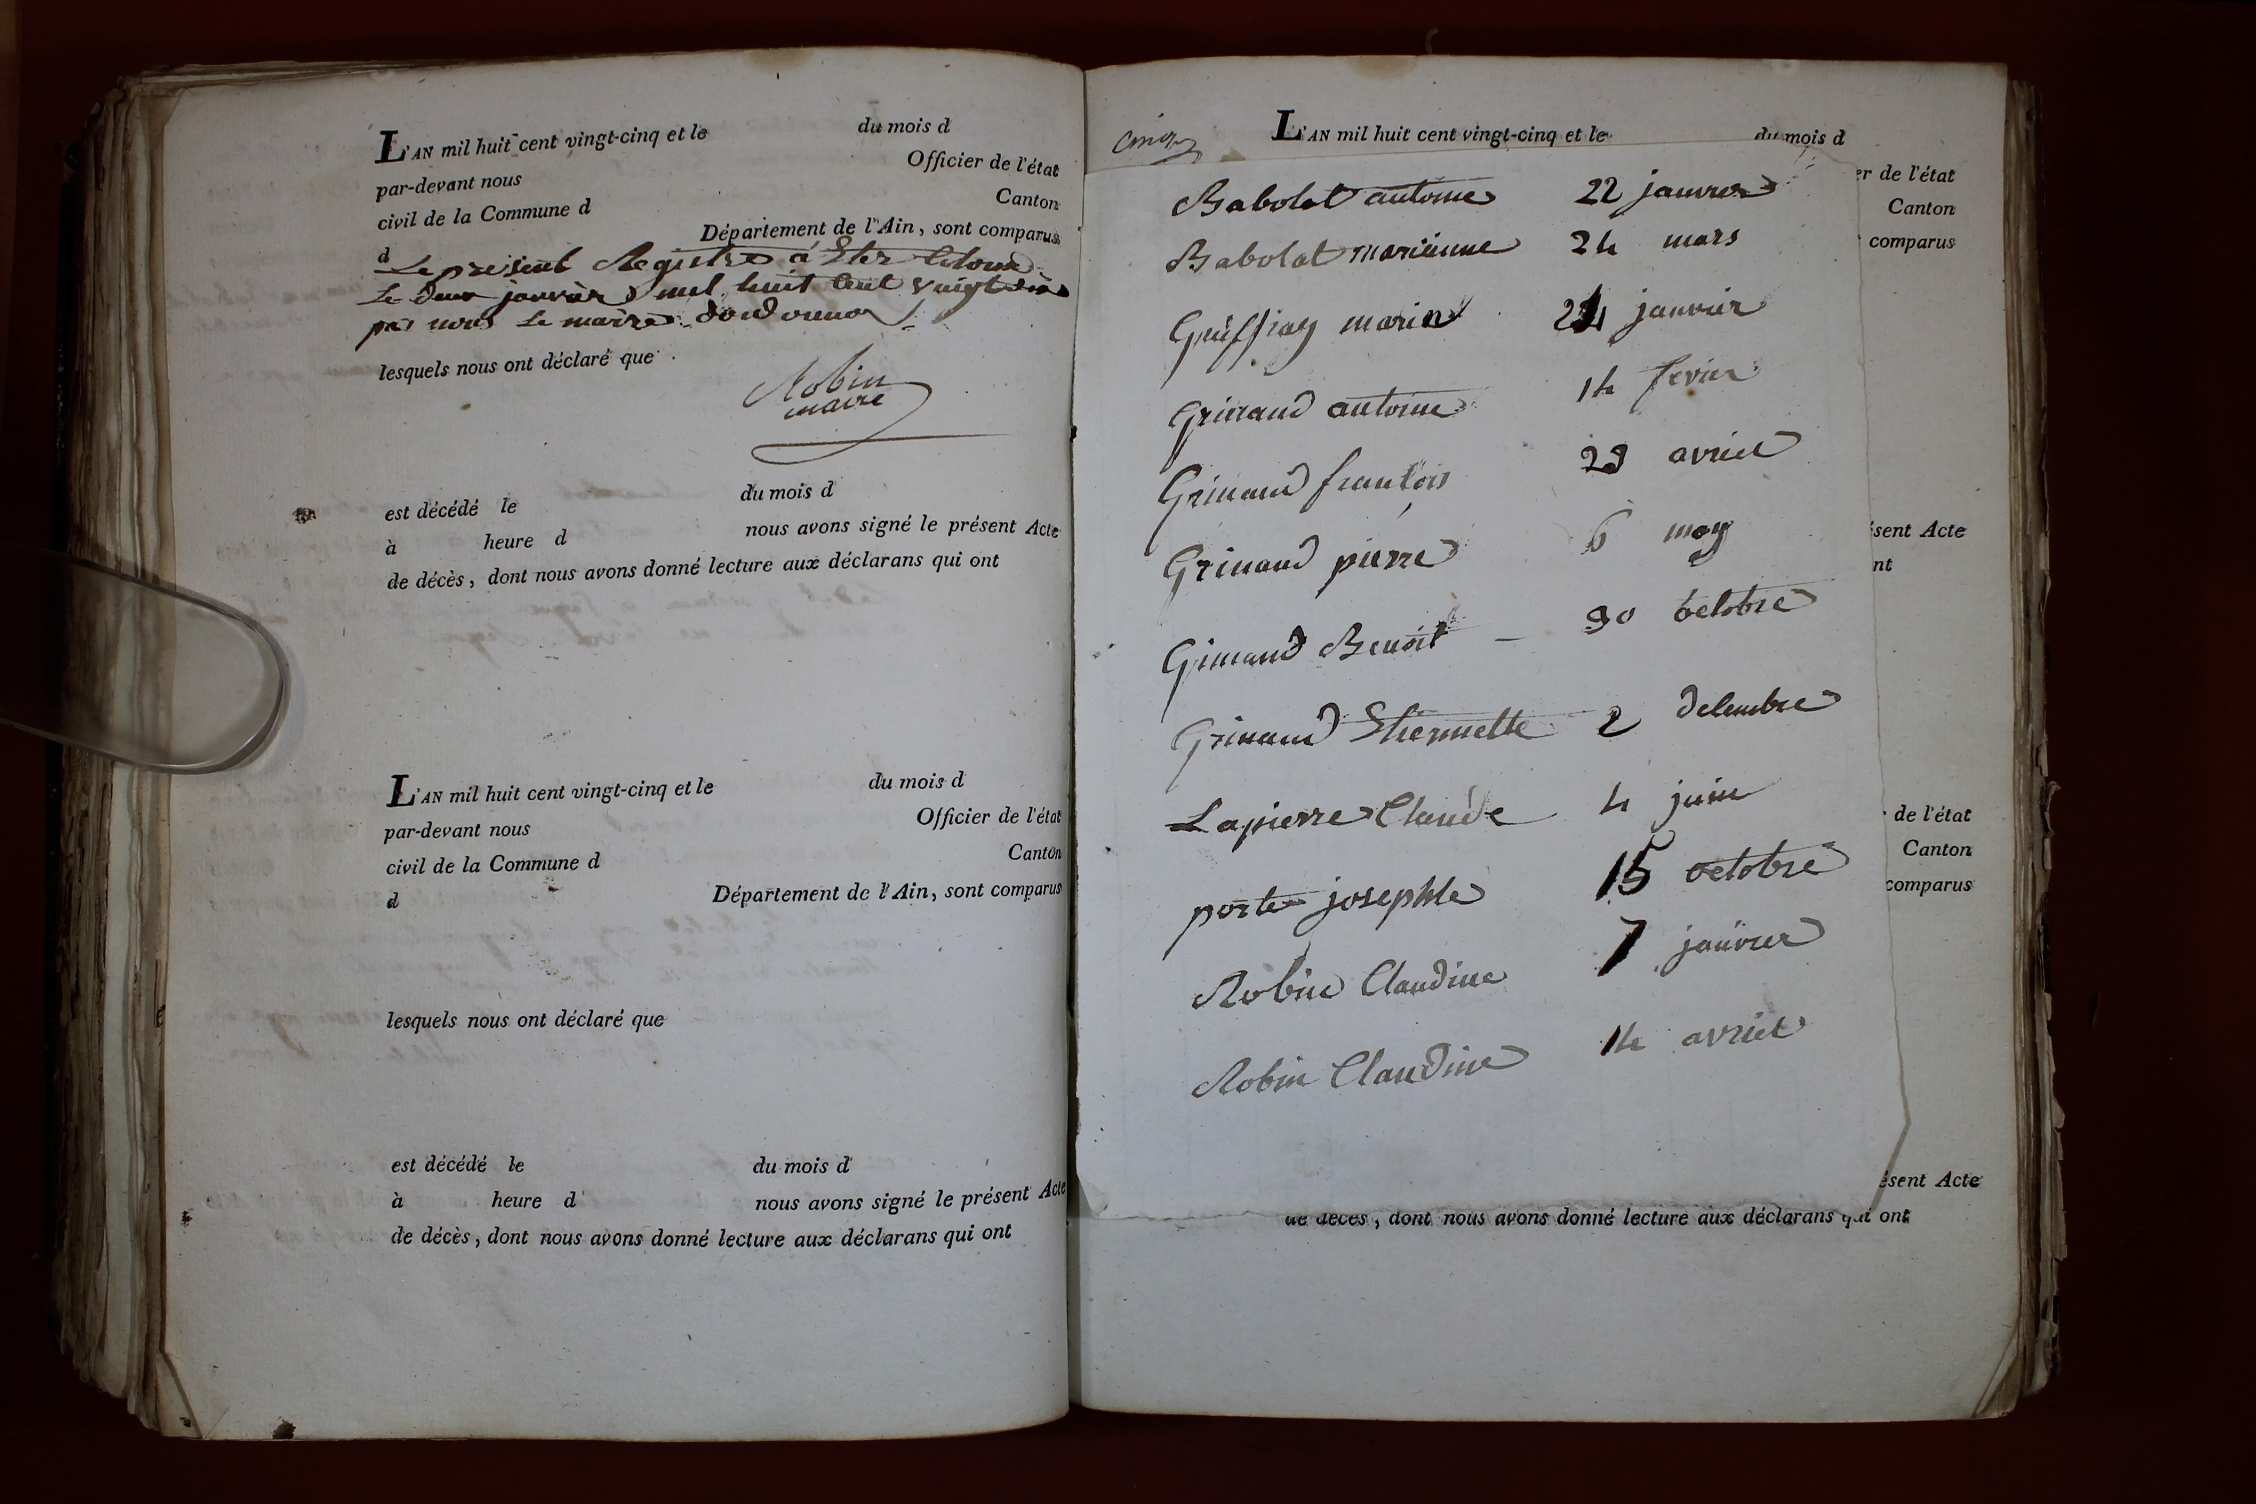 L'AN mil huit cent vingt-cinq et le du mois d
par-devant nous Officier de l'état
civil de la Commune d Canton
d Département de l'Ain, sont comparus
Le présent Registre a Eter Cloture
Le deux janvier mil huit Cent vingt six
par nous Le maire
lesquels nous ont déclaré que
Robin
maire
est décédé le du mois d
à heure d nous avons signé le présent Acte
de décès, dont nous avons donné lecture aux déclarans qui ont
L'AN mil huit cent vingt-cinq et le du mois d
par-devant nous Officier de l'état
civil de la Commune d Canton
d Département de l'Ain, sont comparus
lesquels nous ont déclaré que
est décédé le du mois d
à heure d nous avons signé le présent Acte
de décès, dont nous avons donné lecture aux déclarans qui ont
cinq
L'AN mil huit cent vingt-cinq et le du mois d
er de l'état
Canton
comparus
Babolat antoine 22 janvier
Babolat marianne 24 mars
marie 24 janvier
Grinand antoine 14 fevier
Grinand francois 29 avriel
Grinand pierre 6 may
Grinand Benoit 30 octobre
Grinand Etiennette 2 decembre
Lapierre Claude 4 juin
porte josephte 15 octobre
Robin Claudine 7 janvier
Robin Claudine 14 avriel
ésent Acte
nt
de l'état
Canton
comparus
ésent Acte
de décès, dont nous avons donné lecture aux déclarans qui ont